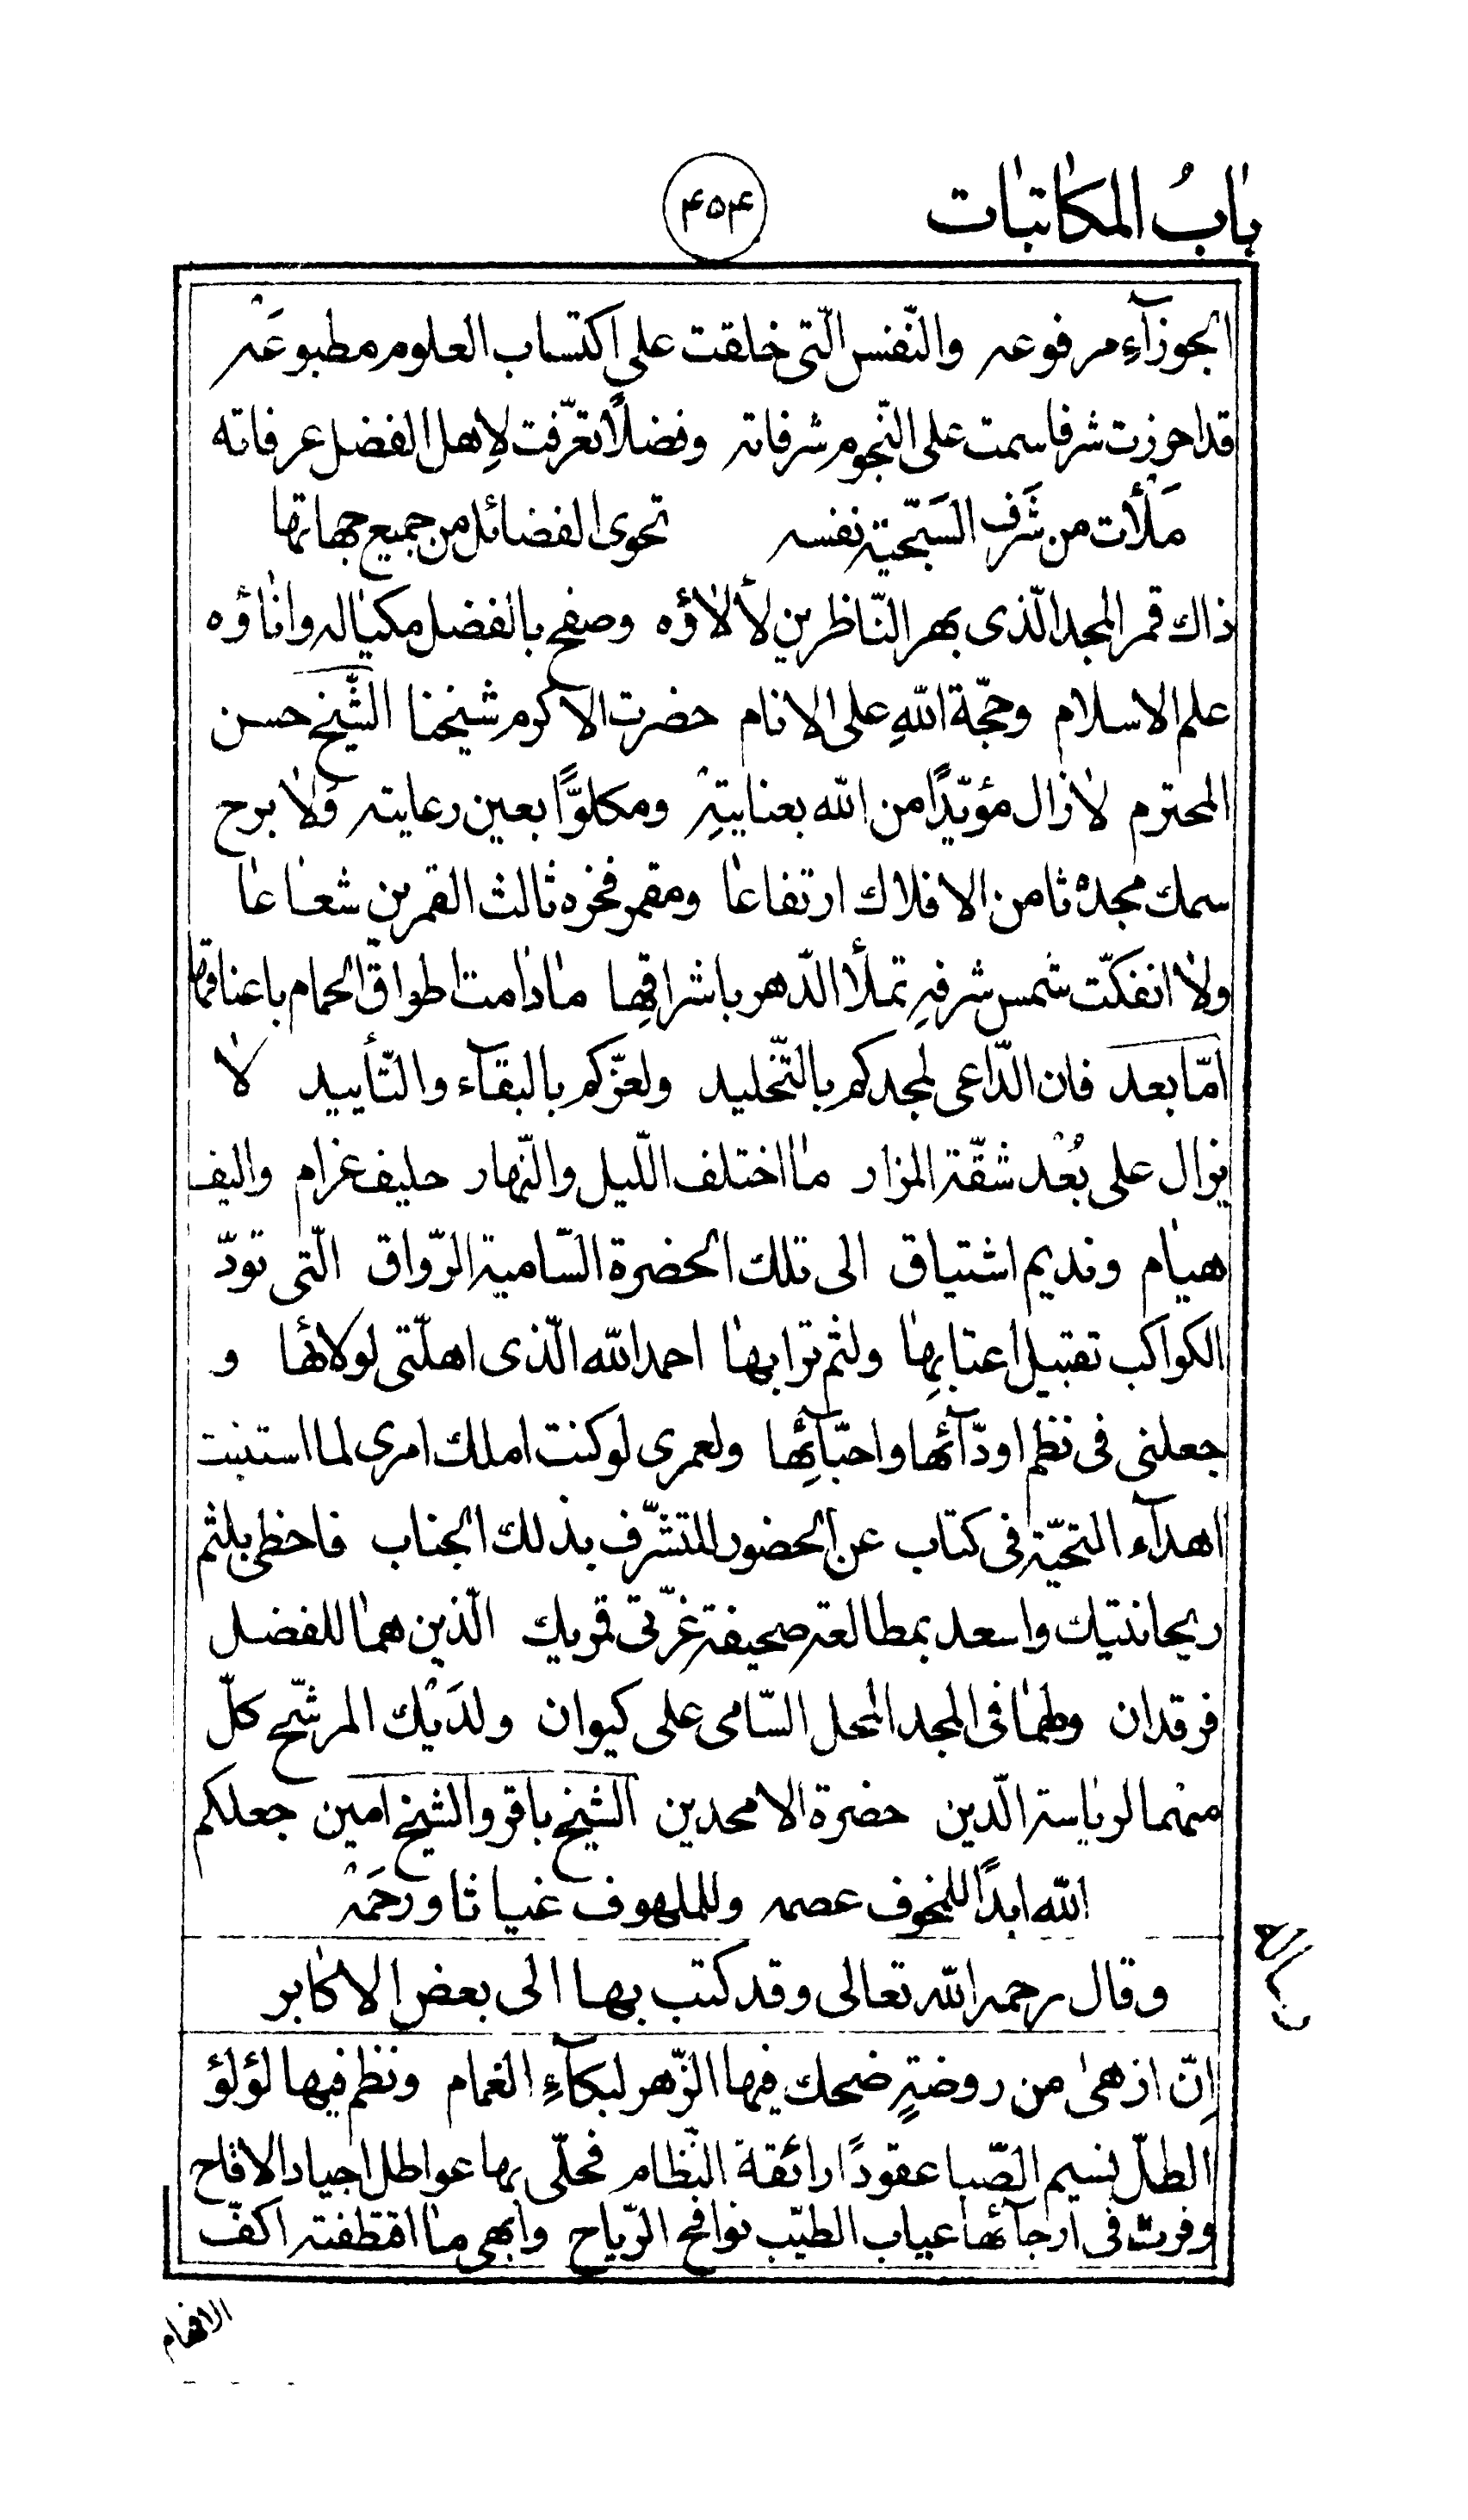 بابُ المكاتبات
۴۵۴
الجوزآءِ مرفوعه والنّفس الّتى خلقت على اكتساب العلوم مطبوعَه
قد احوزت شرفا سمت على النّجوم شرفاته وفضلاً تعرّفت لِاهل الفضل عرفاته
مَلأت من شَرف السَجّية نفسه تحوى الفضائل من جميع جهاتها
ذاك قمر المجد الّذى بهر النّاظرين لألاؤه وصفح بالفضل مكياله واناؤه
علم الاسلام وحجّة اللهِ على الانام حضرت الاكرم شيخنا الشّيخ حسن
المحترم لازال مؤيّدًا من الله بعنايتهِ ومكلوًّا بعين رعايته ولا برح
سمك مجده ثامن الافلاك ارتفاعا ومقمر فخره ثالث القمرين شعاعا
ولا انفكّت شمس شرفهِ تملأ الدّهر باشراقِها مادامت اطواق الحمام باعناقها
امّا بعد فان الدّاعى لمجدكم بالتّخليد ولعزّكم بالبقآء والتّأييد لا
يزال على بُعْد شقّة المزار ما اختلف اللّيل والنّهار حليف غرام واليف
هيام ونديم اشتياق الى تلك الحضرة السّامية الرّواق الّتى تودّ
الكواكب تقبيل اعتابِها ولثم ترابها احمد الله الّذى اهلّنى لولائها و
جعلنى فى نظم اودّآئها واحبّآئِها ولعمرى لو كنت املك امرى لما استنبت
اهدآء التحيّة فى كتاب عن الحضور للتشرّف بذلك الجناب فاحظى بلثم
ريحانتيك واسعد بمطالعة صحيفة غرّتى قمريك الّذين هما للفضل
فرقدان ولهما فى المجد المحل السّامى على كيوان ولدَيْك المرشّح كلّ
منهما لرياسة الدّين حضرة الامجدين الشيخ باقر والشيخ امين جعلكم
الله ابدًا للمخوف عصمه وللملهوف غياثا ورحمَه
وقال رحمه الله تعالى وقد كتب بها الى بعض الاكابر
اِنّ ازهى من روضةٍ ضحك فيها الزّهر لبكآءِ الغمام ونظم فيها لؤلؤ
الطلّ نسيم الصّبا عقودًا رائقة النّظام فحلّى بها عواطل اجياد الاقاح
وفرت فى ارجآئها عياب الطيّب نوافح الرّياح وابهى ما اقتطفته اكفّ
الافهام